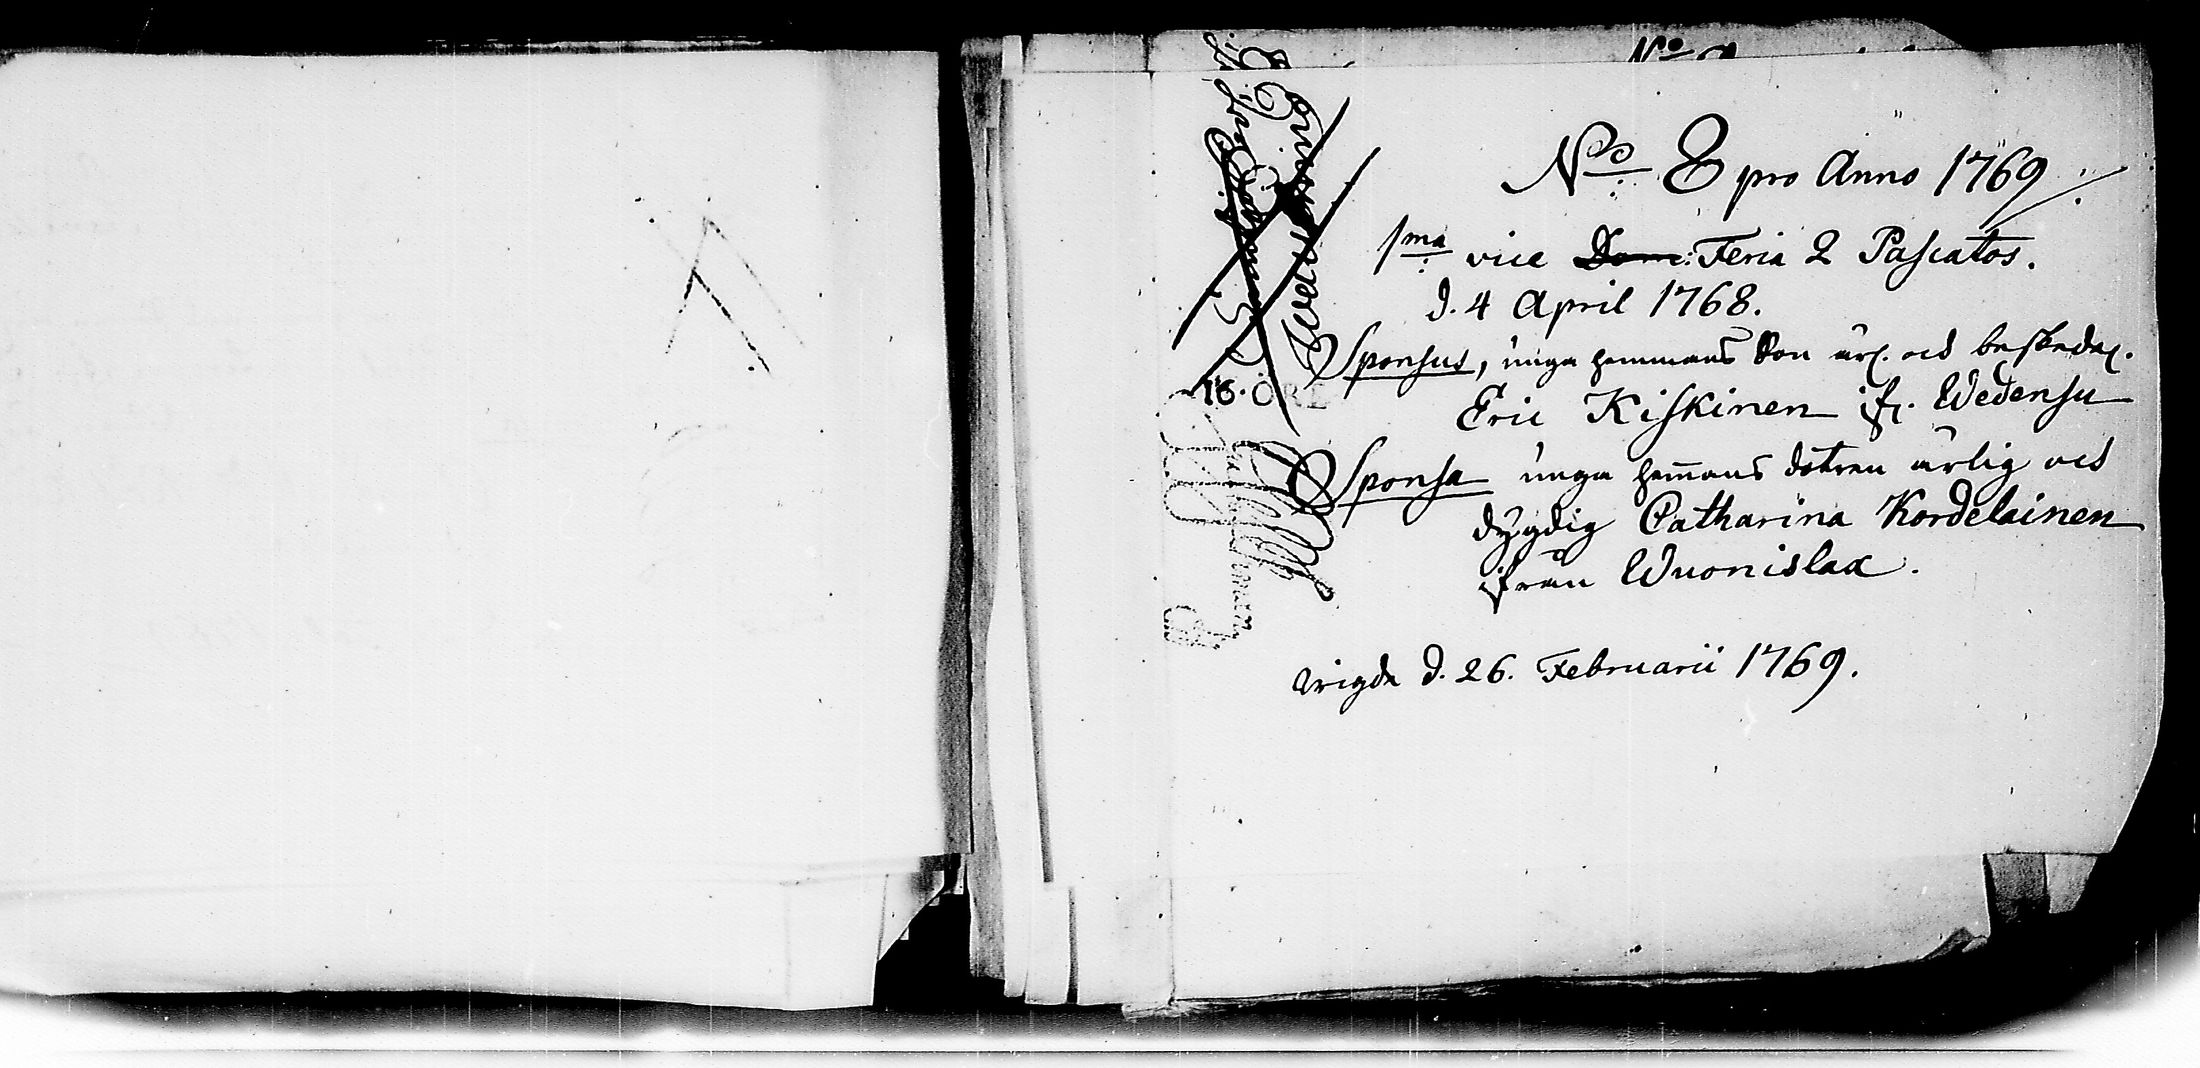 No. 8 pro Anno 1769
1ma vice Dom: Feria 2 Pascatos.
d. 4 April 1768.
Sponsus, unga hemmans Son ärl. och beskedel.
Eric Kiskinen ifr. Wedensu
Sponsa unga hemans dotren ärlig och
dygdig Catharina Kordelainen
ifrån Wuonislax.
wigde d. 26. Februarii 1769.
16. ÖRE